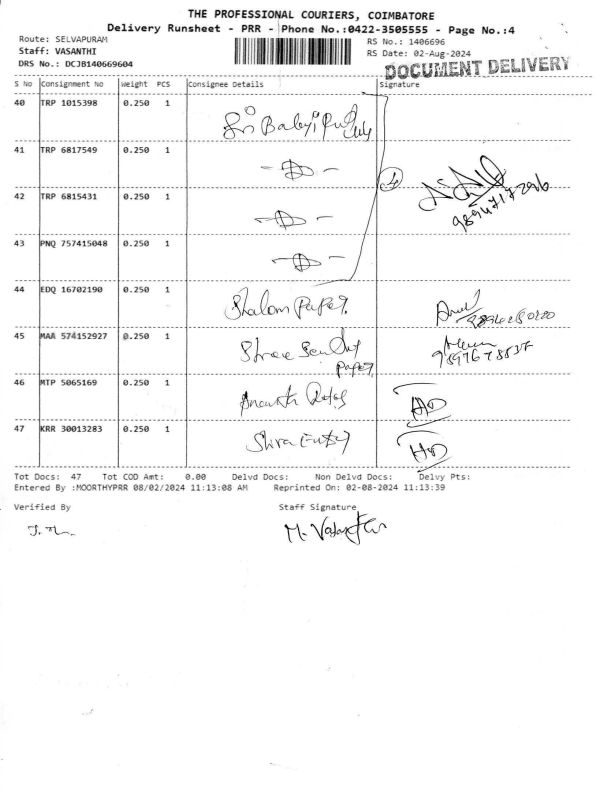 THE PROFESSIONAL COURIERS, COIMBATORE
Delivery Runsheet - PRR - Phone No.:0422-3505555 - Page No.:4
Route: SELVAPURAM
RS No.: 1406696
Staff: VASANTHI
RS Date: 02-Aug-2024
DRS No.: DCJB140669604
DOCUMENT DELIVERY
S No Consignment No Weight PCS Consignee Details Signature
40 TRP 1015398 0.250 1
Sri
41 TRP 6817549 0.250 1
4
42 TRP 6815431 0.250 1
43 PNQ 757415048 0.250 1
44 EDQ 16702190 0.250 1 Shalom Paper
45 MAA 574152927 0.250 1 Shree
Paper
46 MTP 5065169 0.250 1
47 KRR 30013283 0.250 1
Tot Docs: 47 Tot COD Amt: 0.00 Delvd Docs: Non Delvd Docs: Delvy Pts:
Entered By :MOORTHYPRR 08/02/2024 11:13:08 AM Reprinted On: 02-08-2024 11:13:39
Verified By Staff Signature